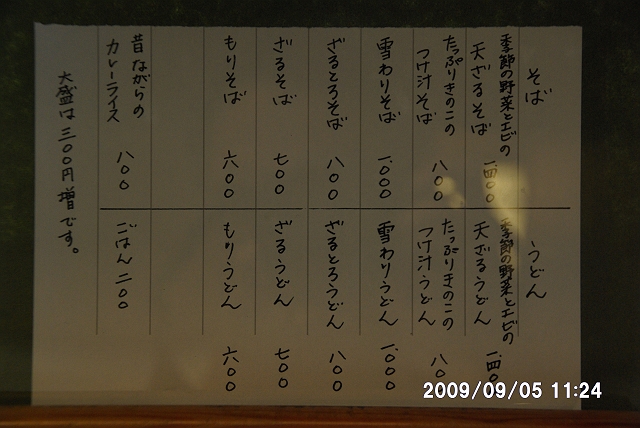 そば
季節の野菜とエビの
天ざるそば 一、四〇〇
たっぷりきのこの
つけ汁そば 八〇〇
雪わりそば 一、〇〇〇
ざるとろそば 八〇〇
ざるそば 七〇〇
もりそば 六〇〇
昔ながらの
カレーライス 八〇〇
大盛は三〇〇円増です。
うどん
季節の野菜とエビの
天ざるうどん 一、四〇
たっぷりきのこの
つけ汁うどん 八〇
雪わりうどん 一、〇〇〇
ざるとろうどん 八〇〇
ざるうどん 七〇〇
もりうどん 六〇〇
ごはん 二〇〇
2009/09/05 11:24